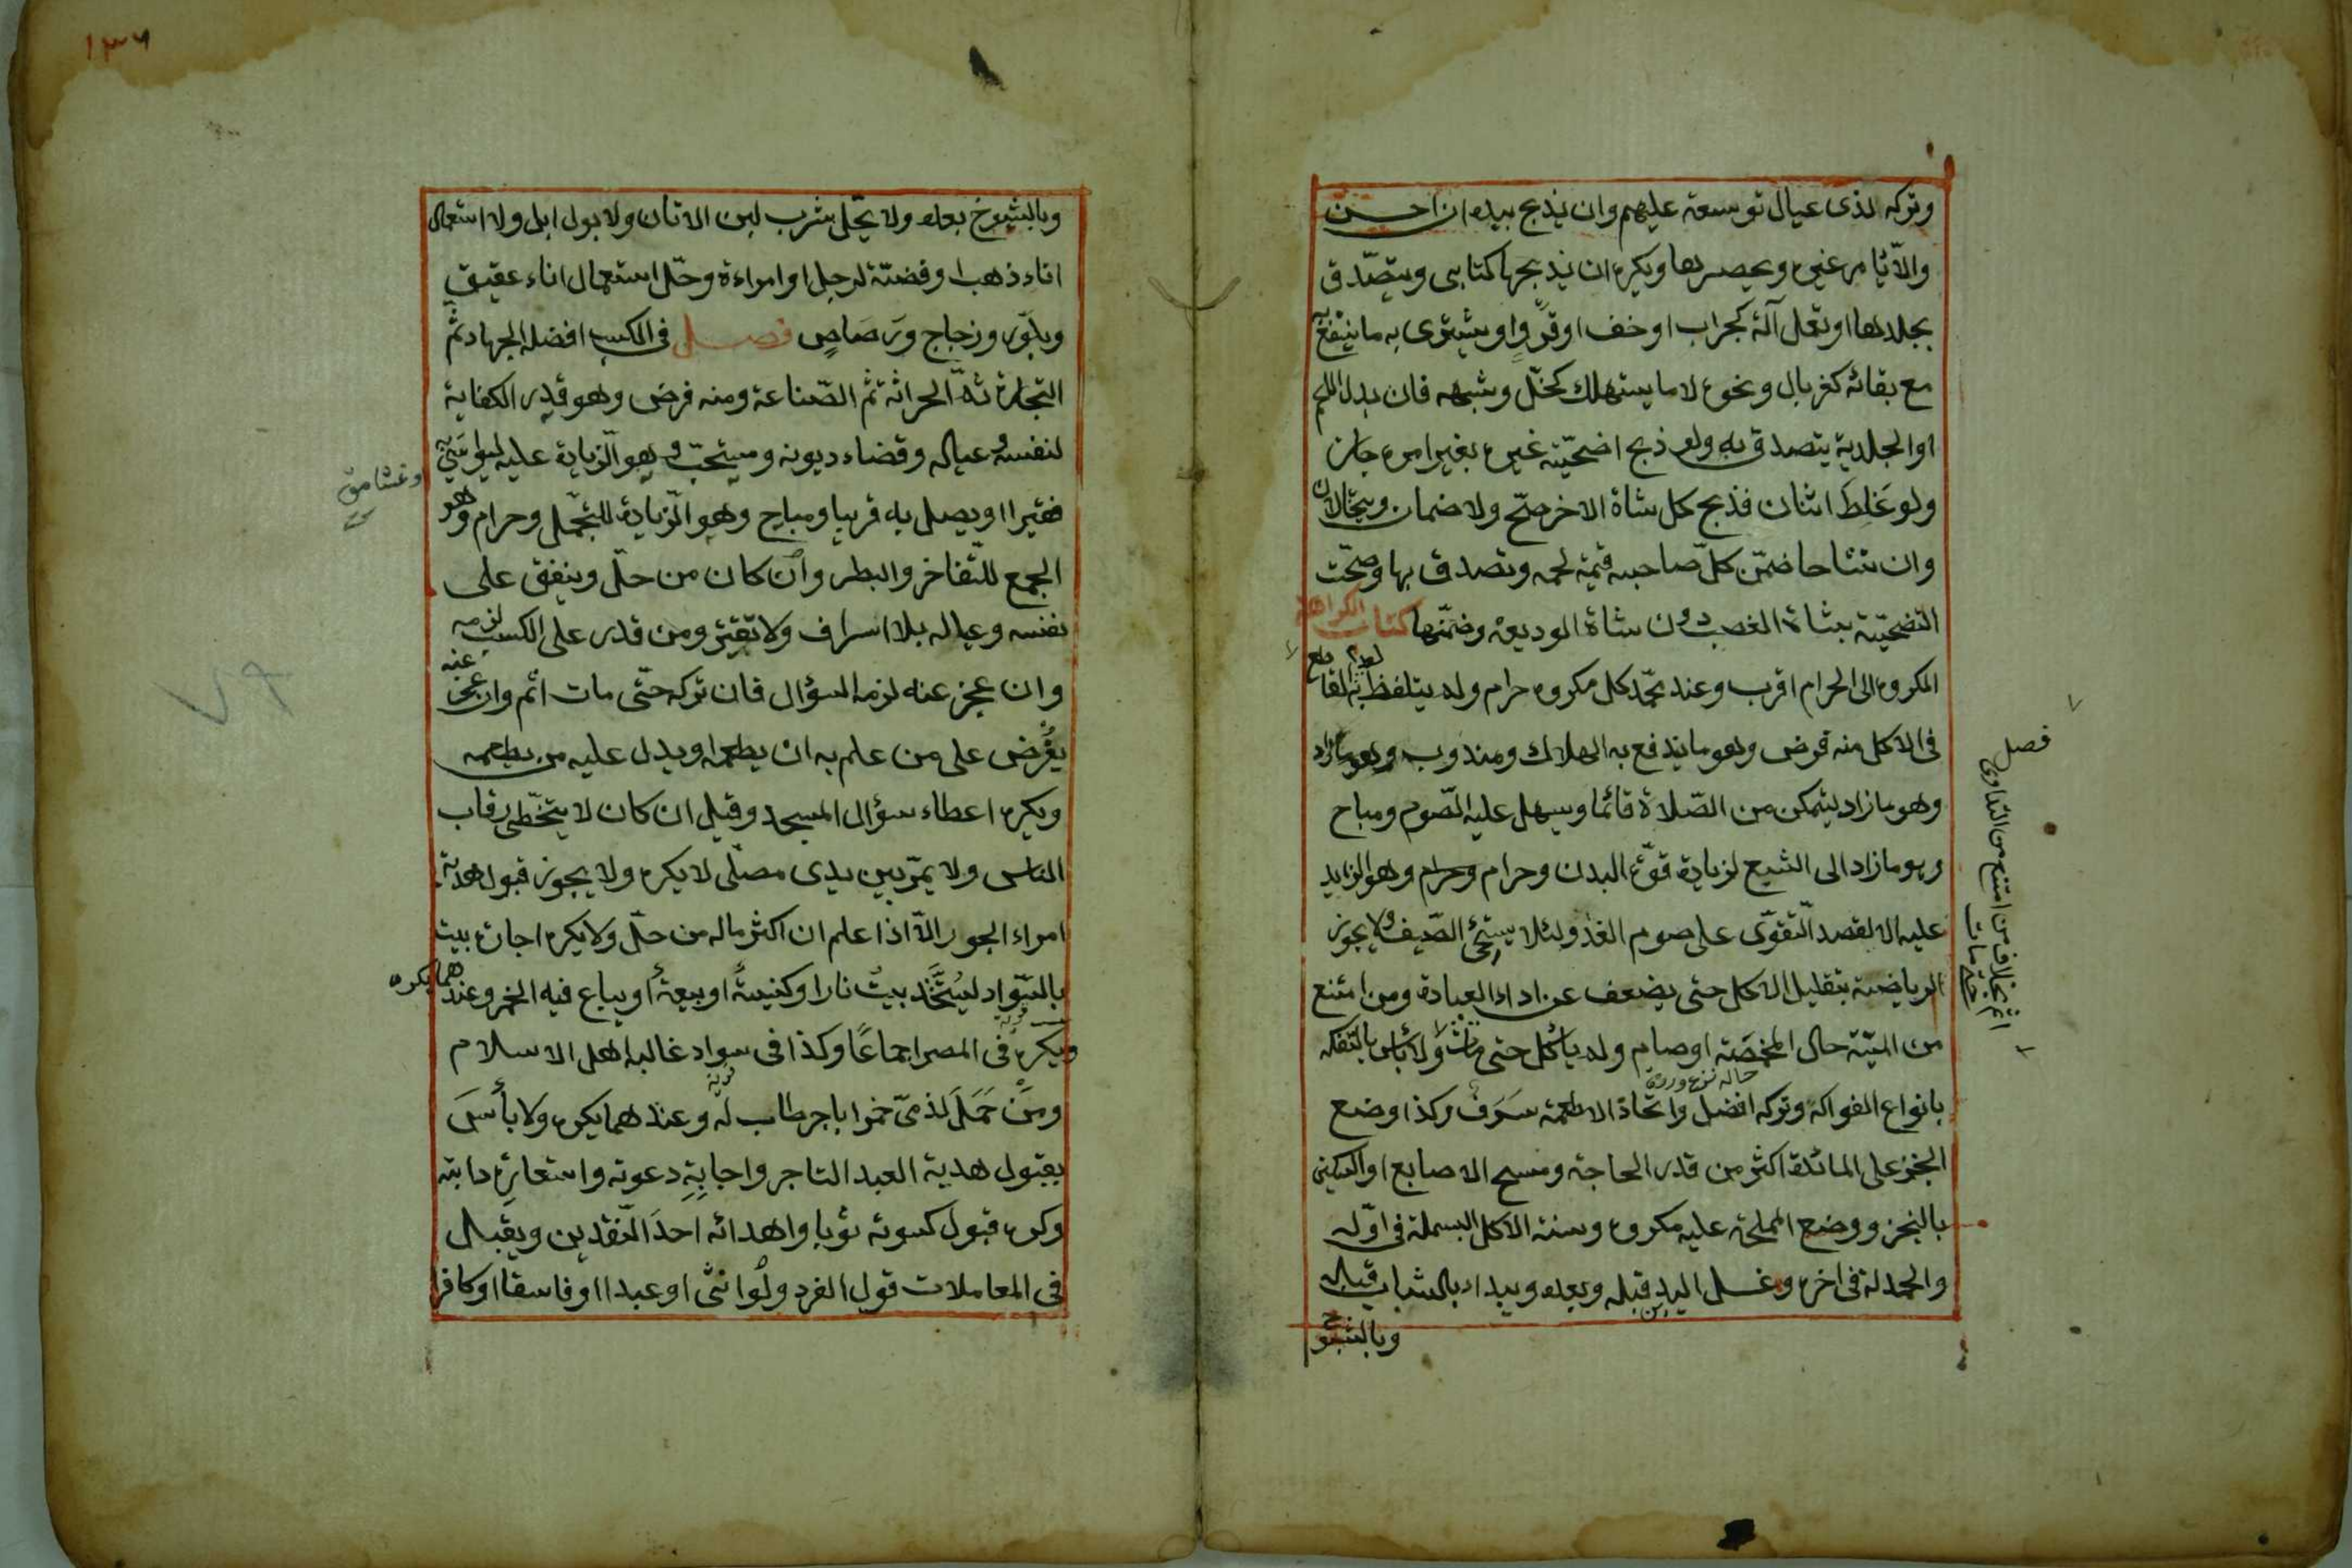 وتركه لذى عيال توسعة عليهم وان يذبح بيده ان احسن
والا يأمر غيره ويحضرها ويكره ان يذبحها كتابى ويتصدق
بجلدها او تعمل آلة كجراب او خف او فرو او يشترى به ما ينتفع به
مع بقائه كغربال ونحوه لا ما يستهلك كخل وشبهه فان بدل اللحم
او الجلد به يتصدق به ولو ذبح اضحيّة غيره بغير امره جاز
ولو غلط اثنان فذبح كل شاة الاخر صح ولا ضمان ويتحالان
وان تشاحا ضمّن كلّ صاحبه قيمة لحمه وتصدق بها وصحّت
التضحيّة بشاة الغصب دون شاة الوديعة وضمنها كتاب الكراهة
المكروه الى الحرام اقرب وعند محمّد كل مكروه حرام ولم يتلفظ به لعدم القاطع
فى الاكل منه فرض وهو ما يندفع به الهلاك ومندوب وهو ما زاد
وهو ما زاد ليتمكن من الصّلاة قائما ويسهل عليه الصّوم ومباح
وهو ما زاد الى الشبع لزيادة قوّة البدن وحرام وحرام وهو الزايد
عليه الا لقصد التّقوّى على صوم الغد ولئلا يستحى الضّيف ولا يجوز
الرياضة بتقليل الاكل حتى يضعف عن اداء العبادة ومن امتنع
من الميتة حال المخمصة او صام ولم يأكل حتى مات اثم ولا بأس بالتفكه
بانواع الفواكه وتركه افضل واتخاذ الاطعمة سرف وكذا وضع
الخبز على المائدة اكثر من قدر الحاجة ومسح الاصابع او السكين
بالخبز ووضع المملحة عليه مكروه وسنة الاكل البسملة فى اوّله
والحمدلة فى اخره وغسل اليدين قبله وبعده ويبداء بالشباب قبله
وبالشيوخ
فصل
اثم بخلاف من امتنع من التداوى
حتى مات
١٣٦
وبالشيوخ بعده ولا يحّل شرب لبن الاتان ولا بول ابل ولا استعمال
اناء ذهب او فضّة لرجل او امراءة وحّل استعمال اناء عقيق
وبلّور وزجاج ورَصاصٍ فصل فى الكسب افضله الجهاد ثمّ
التجارة ثمّ الحراثة ثمّ الصّناعة ومنه فرض وهو قدر الكفاية
لنفسه وعياله وقضاء ديونه ومستحبّ وهو الزيادة عليه ليواسى به
فقيرا او يصل به قريبا ومباح وهو الزيادة للتجمّل وحرام وهو
الجمع للتّفاخر والبطر وان كان من حلّ وينفق على
نفسه وعياله بلا اسراف ولا تقتير ومن قدر على الكسب لزمه
وان عجز عنه لزمه السؤال فان تركه حتّى مات اثم وان عجز عنه
يفرض على من علم به ان يطعمه او يدل عليه من يطعمه
ويكره اعطاء سؤال المسجد وقيل ان كان لا يتخطّى رقاب
الناس ولا يمرّ بين يدى مصلّى لا يكره ولا يجوز قبول هدية
امراء الجور الاّ اذا علم ان اكثر ماله من حلّ ولا يكره اجارة بيت
بالسّواد ليُتَّخذ بيتُ نار او كنيسةً او بيعةً او يباع فيه الخمر وعندهما يكره
ويكره فى المصر اجماعًا وكذا فى سواد غالبه اهل الاسلام
ومن حَمَلَ لذمىّ خمرا باجر طاب له وعندهما يكره ولا بأس
بقبول هدية العبد التاجر واجابةِ دعوته واستعارةِ دابته
وكره قبول كسوته ثوبا واهدائه احدَ النّقدين ويقبل
فى المعاملات قول الفرد ولو انثى او عبدا او فاسقا او كافرا